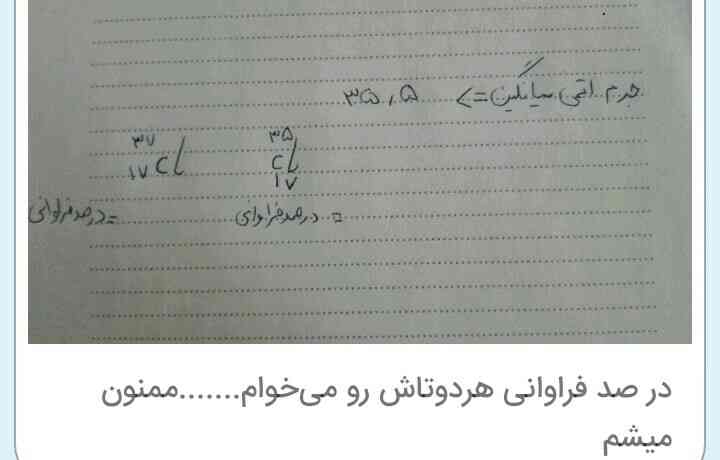 جرم اتمی میانگین => ۳۵,۵
۳۵
Cl
۱۷
۳۷
۱۷ Cl
درصد فراوانی =
درصد فراوانی =
در صد فراوانی هردوتاش رو می‌خوام.......ممنون
میشم